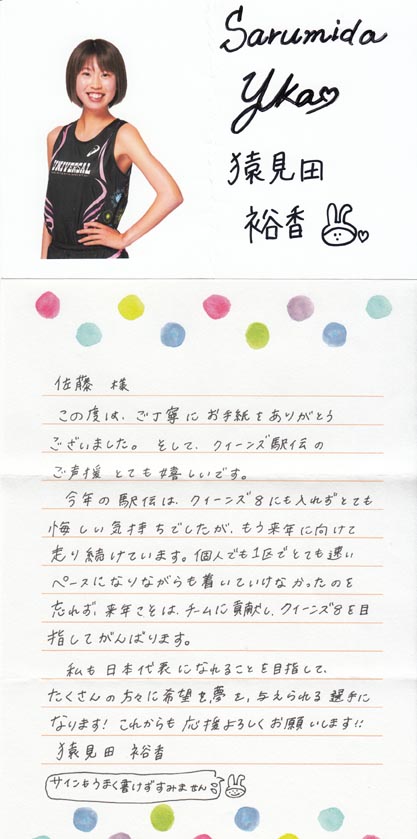 Sarumida
Yka
猿見田
裕香
UNIVERSAL
佐藤 様
この度は、ご丁寧にお手紙をありがとう
ございました。そして、クイーンズ駅伝の
ご声援とても嬉しいです。
今年の駅伝は、クイーンズ8にも入れずとても
悔しい気持ちでしたが、もう来年に向けて
走り続けています。個人でも1区でとても速い
ペースになりながらも着いていけなかったのを
忘れず、来年こそは、チームに貢献し、クイーンズ8を目
指してがんばります。
私も日本代表になれることを目指して、
たくさんの方々に希望を、夢を、与えられる選手に
なります!これからも応援よろしくお願いします!!
猿見田 裕香
サインもうまく書けずすみません